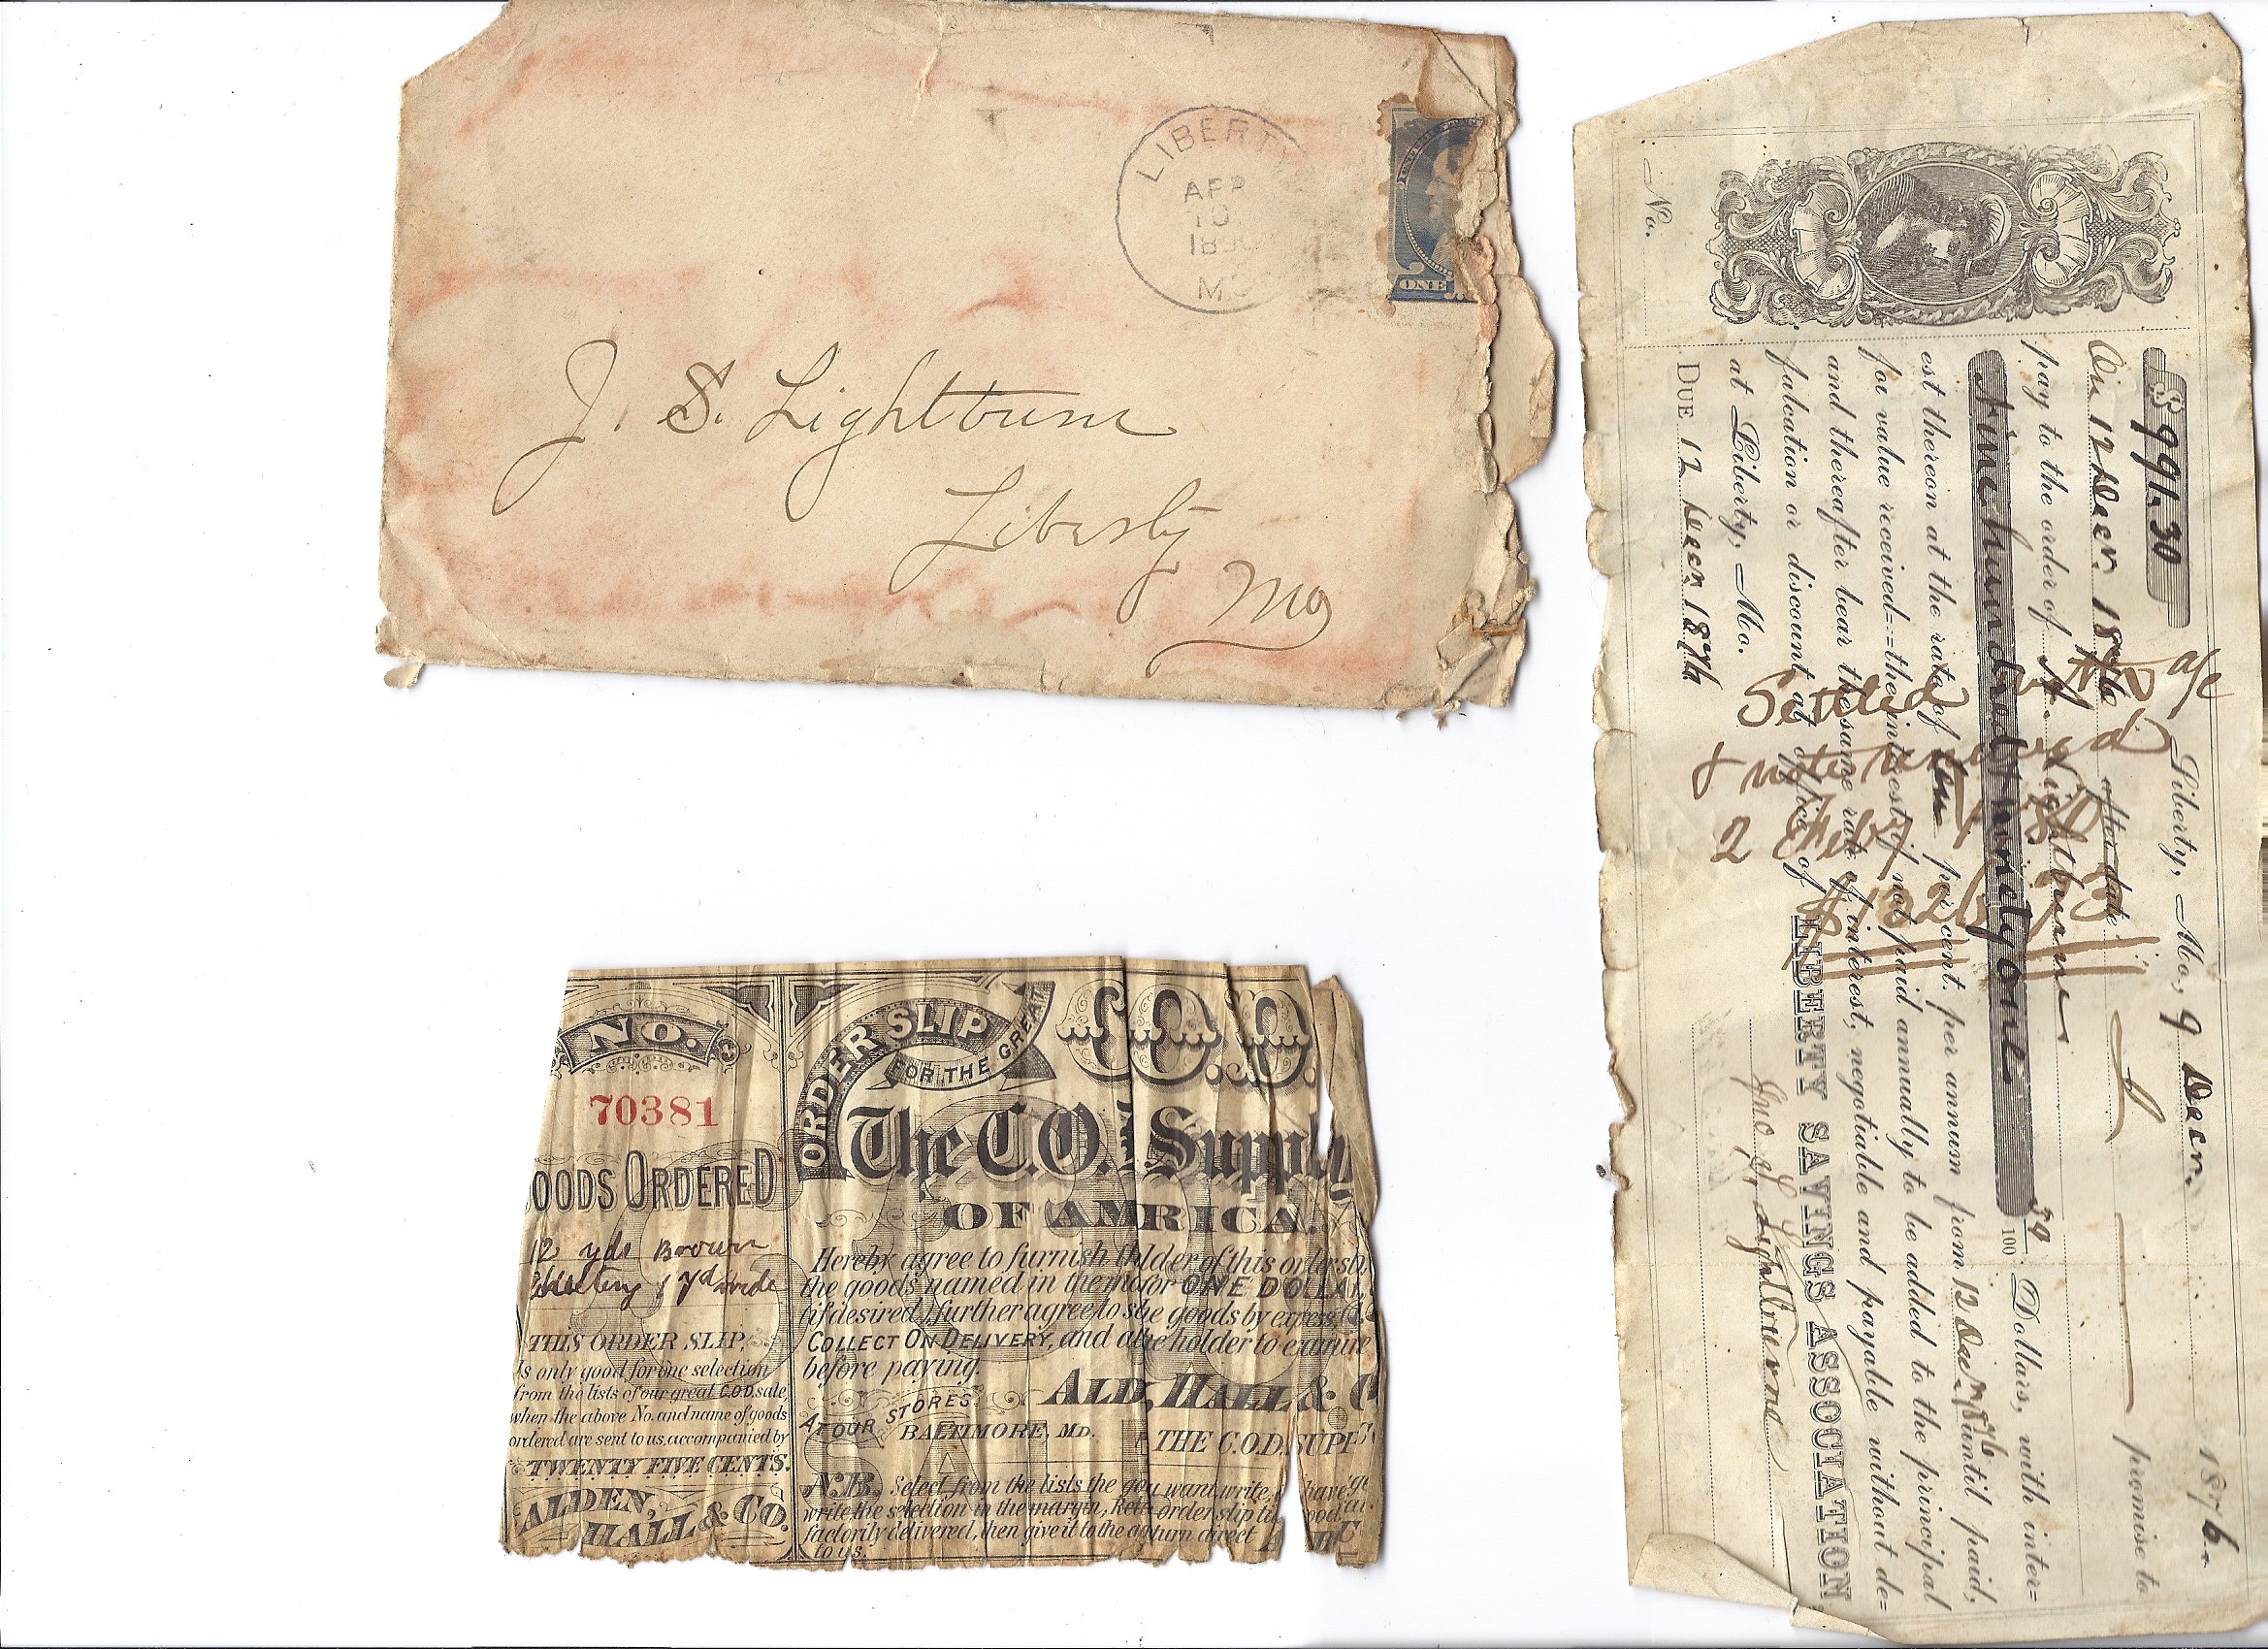 LIBERTY
APR
10
MO
ONE
J. S. Lightburn
Liberty
Mo
NO.
70381
OODS ORDERED
12 yds Brown
Sheeting 1 yd wide
THIS ORDER SLIP,
Is only good for one selection
from the lists of our great C.O.D. sale,
when the above No. and name of goods
ordered are sent to us, accompanied by
TWENTY FIVE CENTS.
ALDEN,
HALL & CO.
ORDER SLIP
FOR THE GREAT
C.O.D.
The C.O. Supply
OF AMRICA.
Hereby agree to furnish holder of this order sl
the goods named in the m for ONE DOLLAR,
(if desired), further agree to s the goods by express,
COLLECT ON DELIVERY, and a the holder to examine
before paying.
ALD, HALL & C
AT OUR STORES
BALTIMORE, MD.
THE C.O.D. SUPP
N.B. Select from the lists the you want, write have
write the selection in the margin, Ret order slip ti ood
factorily delivered, then give it to the a turn direct
to us.
No.
$991.30
Liberty, Mo., 9 Decr. 1876.
On 12 Decr 1876 after date I promise to
pay to the order of A. Lightburne
Nine hundred & ninety one 30/100 Dollars, with inter=
est thereon at the rate of ten per cent. per annum from 12 Decr 1876 until paid,
for value received--the interest if not paid annually to be added to the principal
and thereafter bear the same rate of interest, negotiable and payable without de=
falcation or discount at office of LIBERTY SAVINGS ASSOCIATION
at Liberty, Mo.
DUE 12 Decr 1876
Jno S. Lightburne
Settled
& note renewed
2 Feby